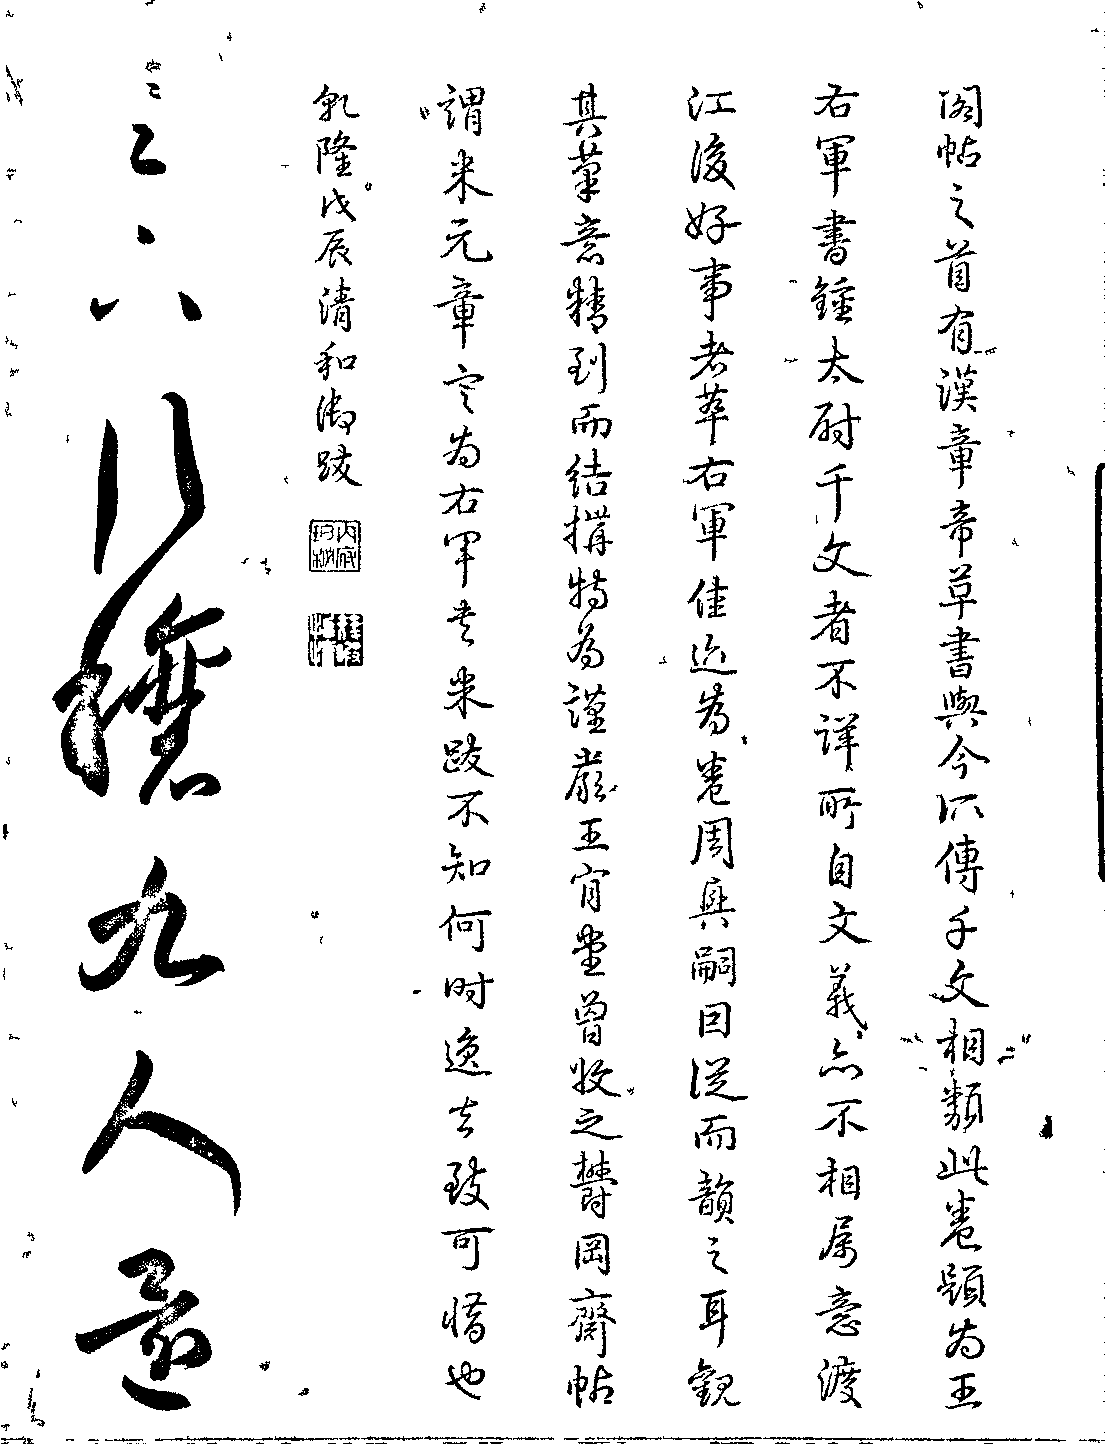 閣帖之首有漢章帝草書與今所傳千文相類此卷題為王
右軍書鍾太尉千文者不詳所自文義亦不相屬意渡
江後好事者萃右軍佳迹為卷周興嗣因從而韻之耳觀
其筆意精到而結構特為謹嚴王肯堂曾收之鬱岡齋帖
謂米元章定為右軍書米跋不知何時逸去致可惜也
乾隆戊辰清和御跋
二六
九人